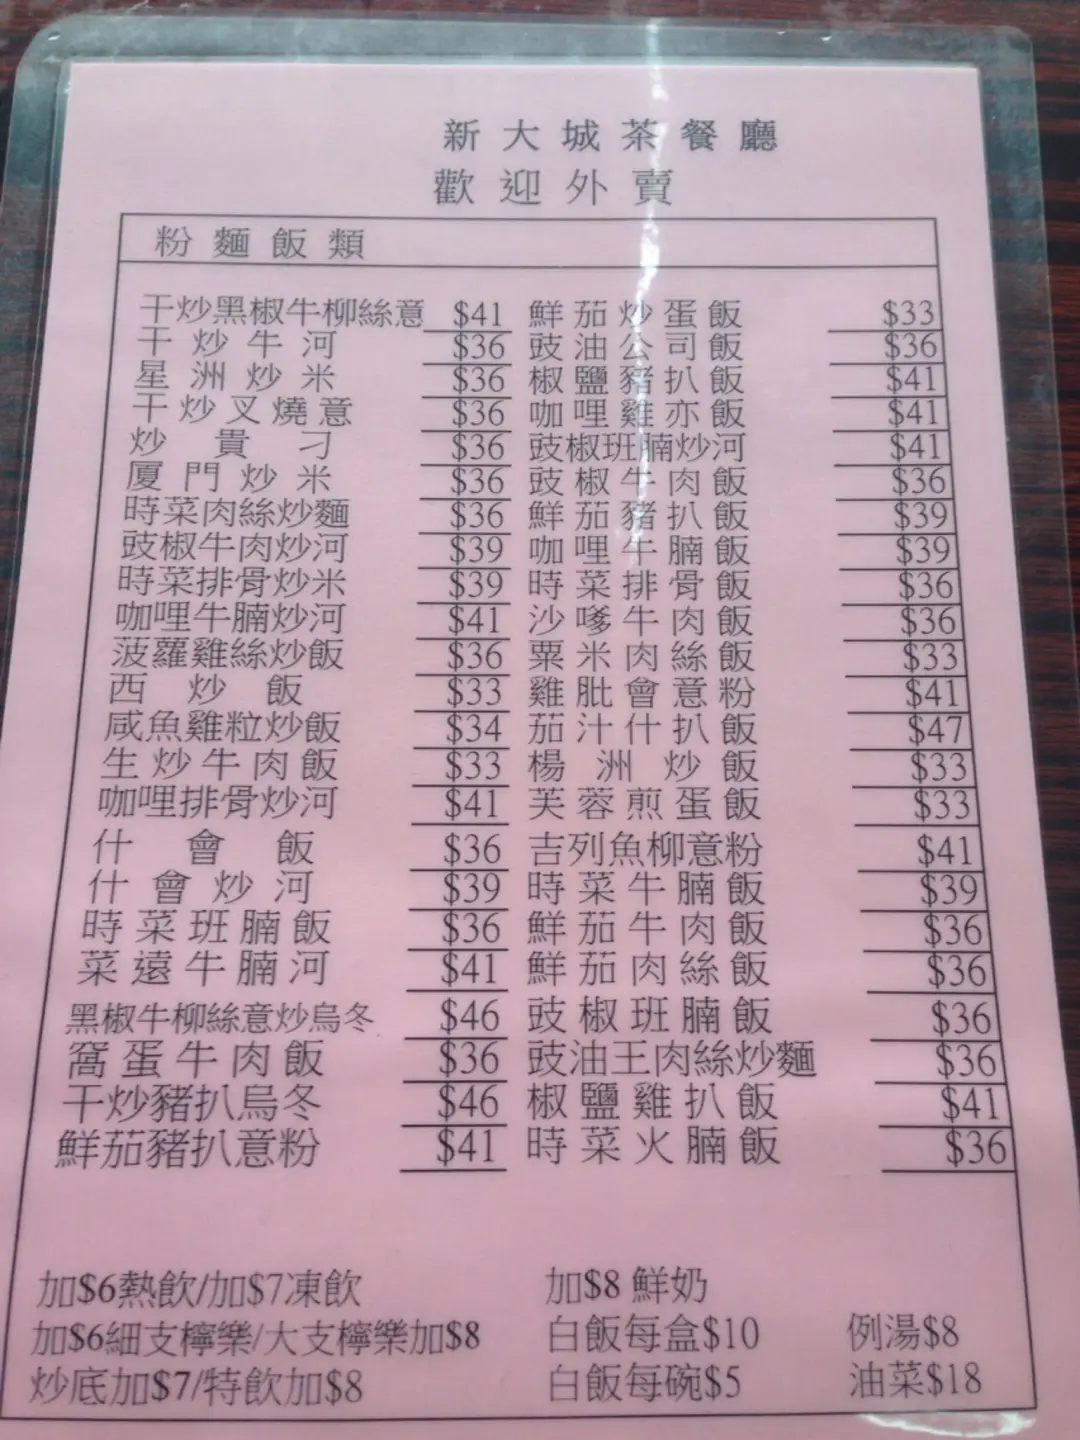 新大城茶餐廳
歡迎外賣
粉麵飯類
干炒黑椒牛柳絲意 $41 鮮茄炒蛋飯 $33
干炒牛河 $36 豉油公司飯 $36
星洲炒米 $36 椒鹽豬扒飯 $41
干炒叉燒意 $36 咖哩雞亦飯 $41
炒貴刁 $36 豉椒班腩炒河 $41
厦門炒米 $36 豉椒牛肉飯 $36
時菜肉絲炒麵 $36 鮮茄豬扒飯 $39
豉椒牛肉炒河 $39 咖哩牛腩飯 $39
時菜排骨炒米 $39 時菜排骨飯 $36
咖哩牛腩炒河 $41 沙嗲牛肉飯 $36
菠蘿雞絲炒飯 $36 粟米肉絲飯 $33
西炒飯 $33 雞肶會意粉 $41
咸魚雞粒炒飯 $34 茄汁什扒飯 $47
生炒牛肉飯 $33 楊洲炒飯 $33
咖哩排骨炒河 $41 芙蓉煎蛋飯 $33
什會飯 $36 吉列魚柳意粉 $41
什會炒河 $39 時菜牛腩飯 $39
時菜班腩飯 $36 鮮茄牛肉飯 $36
菜遠牛腩河 $41 鮮茄肉絲飯 $36
黑椒牛柳絲意炒烏冬 $46 豉椒班腩飯 $36
窩蛋牛肉飯 $36 豉油王肉絲炒麵 $36
干炒豬扒烏冬 $46 椒鹽雞扒飯 $41
鮮茄豬扒意粉 $41 時菜火腩飯 $36
加$6熱飲/加$7凍飲 加$8 鮮奶
加$6細支檸樂/大支檸樂加$8 白飯每盒$10 例湯$8
炒底加$7/特飲加$8 白飯每碗$5 油菜$18